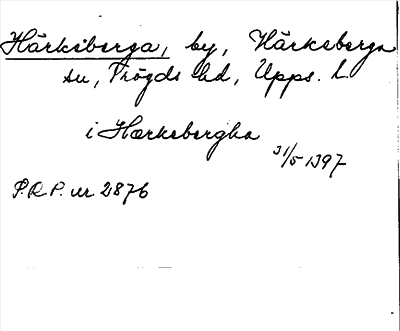 Härkeberga, by, Härkeberga
sn, Trögds hd, Upps. l.
i Hærkebergha
31/5 1397
P.R.P. nr 2876